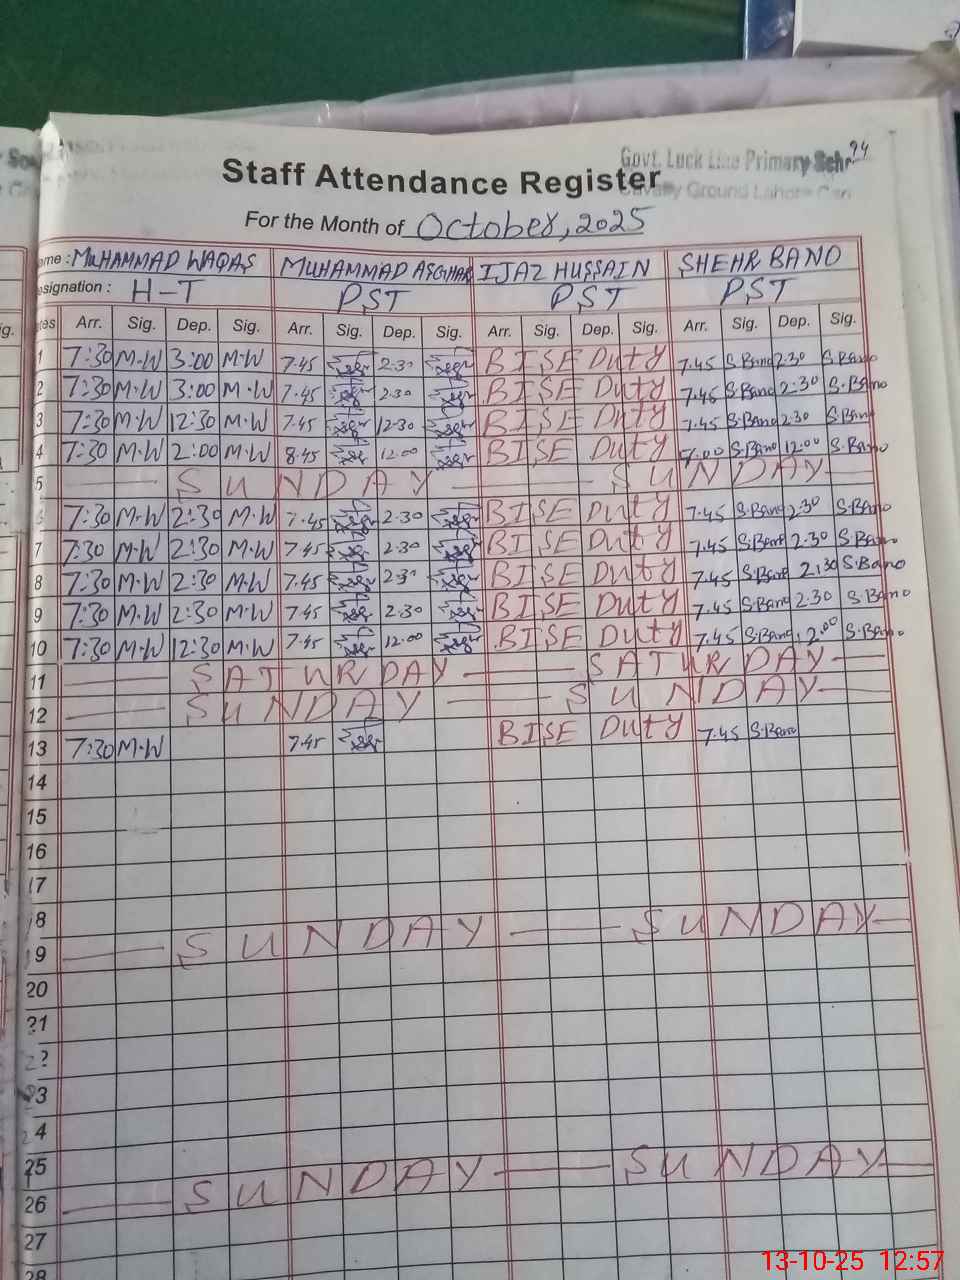 Govt. Luck Line Primary Sch 94
Staff Attendance Register
Cavalry Ground Lahore Can
For the Month of October, 2025
ame : MUHAMMAD WAQAS MUHAMMAD ASGHAR IJAZ HUSSAIN SHEHR BANO
esignation : H-T PST PST PST
ates Arr. Sig. Dep. Sig. Arr. Sig. Dep. Sig. Arr. Sig. Dep. Sig. Arr. Sig. Dep. Sig.
1 7:30 M.W 3:00 M.W 7.45 2.30 BISE Duty 7.45 S.Bano 2.30 S.Bano
2 7:30 M.W 3:00 M.W 7.45 2.30 BISE Duty 7.45 S.Bano 2.30 S.Bano
3 7:30 M.W 12:30 M.W 7.45 12.30 BISE Duty 7.45 S.Bano 2.30 S.Bano
4 7:30 M.W 2:00 M.W 8.45 12.00 BISE Duty S.Bano 12.00 S.Bano
5 SUNDAY SUNDAY
6 7:30 M.W 2:30 M.W 7.45 2.30 BISE Duty 7.45 S.Bano 2.30 S.Bano
7 7:30 M.W 2:30 M.W 7.45 2.30 BISE Duty 7.45 S.Bano 2.30 S.Bano
8 7:30 M.W 2:30 M.W 7.45 2.30 BISE Duty 7.45 S.Bano 2.30 S.Bano
9 7:30 M.W 2:30 M.W 7.45 2.30 BISE Duty 7.45 S.Bano 2.30 S.Bano
10 7:30 M.W 12:30 M.W 7.45 12.00 BISE Duty 7.45 S.Bano 12.00 S.Bano
11 SATURDAY SATURDAY
12 SUNDAY SUNDAY
13 7:30 M.W 7.45 BISE Duty 7.45 S.Bano
14
15
16
17
18
19 SUNDAY SUNDAY
20
21
22
23
24
25
26 SUNDAY SUNDAY
27
28
13-10-25 12:57